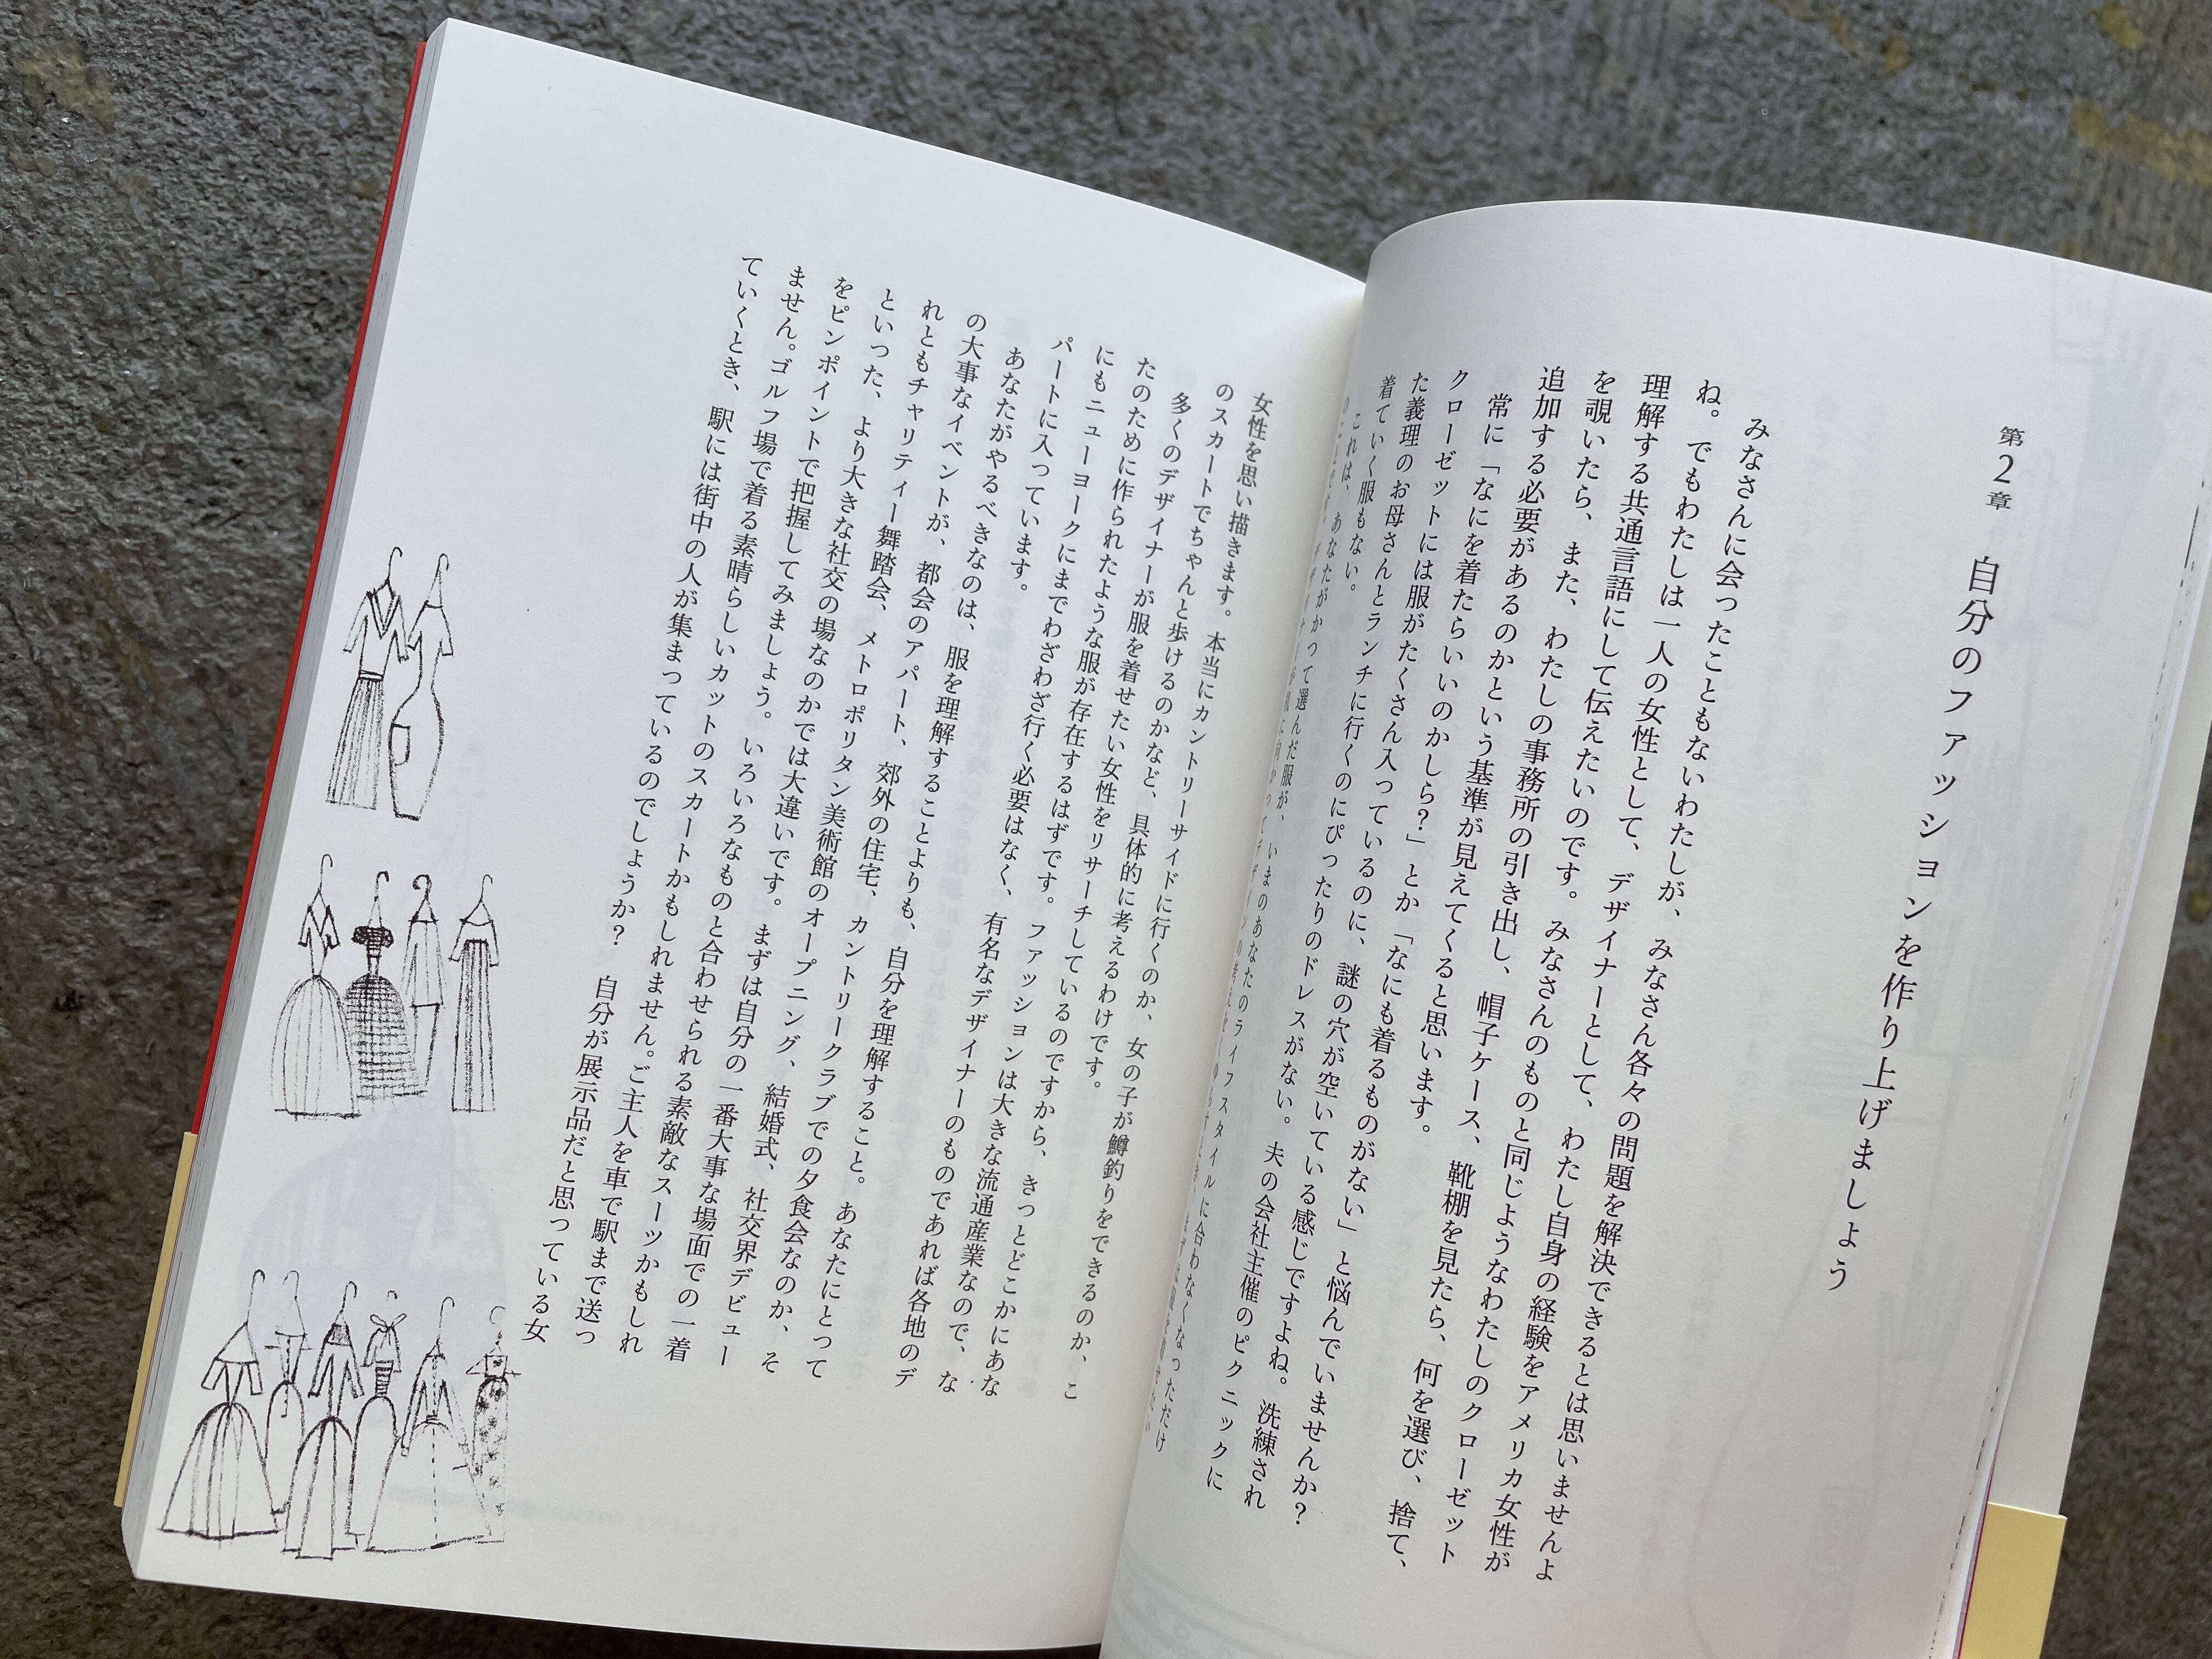 第2章　自分のファッションを作り上げましょう
みなさんに会ったこともないわたしが、みなさん各々の問題を解決できるとは思いませんよ
ね。でもわたしは一人の女性として、デザイナーとして、わたし自身の経験をアメリカ女性が
理解する共通言語にして伝えたいのです。みなさんのものと同じようなわたしのクローゼット
を覗いたら、また、わたしの事務所の引き出し、帽子ケース、靴棚を見たら、何を選び、捨て、
追加する必要があるのかという基準が見えてくると思います。
常に「なにを着たらいいのかしら？」とか「なにも着るものがない」と悩んでいませんか？
クローゼットには服がたくさん入っているのに、謎の穴が空いている感じですよね。洗練され
た義理のお母さんとランチに行くのにぴったりのドレスがない。夫の会社主催のピクニックに
着ていく服もない。
これは、あなたがかつて選んだ服が、いまのあなたのライフスタイルに合わなくなっただけ
女性を思い描きます。本当にカントリーサイドに行くのか、女の子が鱒釣りをできるのか、こ
のスカートでちゃんと歩けるのかなど、具体的に考えるわけです。
多くのデザイナーが服を着せたい女性をリサーチしているのですから、きっとどこかにあな
たのために作られたような服が存在するはずです。ファッションは大きな流通産業なので、な
にもニューヨークにまでわざわざ行く必要はなく、有名なデザイナーのものであれば各地のデ
パートに入っています。
あなたがやるべきなのは、服を理解することよりも、自分を理解すること。あなたにとって
の大事なイベントが、都会のアパート、郊外の住宅、カントリークラブでの夕食会なのか、そ
れともチャリティー舞踏会、メトロポリタン美術館のオープニング、結婚式、社交界デビュー
といった、より大きな社交の場なのかでは大違いです。まずは自分の一番大事な場面での一着
をピンポイントで把握してみましょう。いろいろなものと合わせられる素敵なスーツかもしれ
ません。ゴルフ場で着る素晴らしいカットのスカートかもしれません。ご主人を車で駅まで送っ
ていくとき、駅には街中の人が集まっているのでしょうか？　自分が展示品だと思っている女